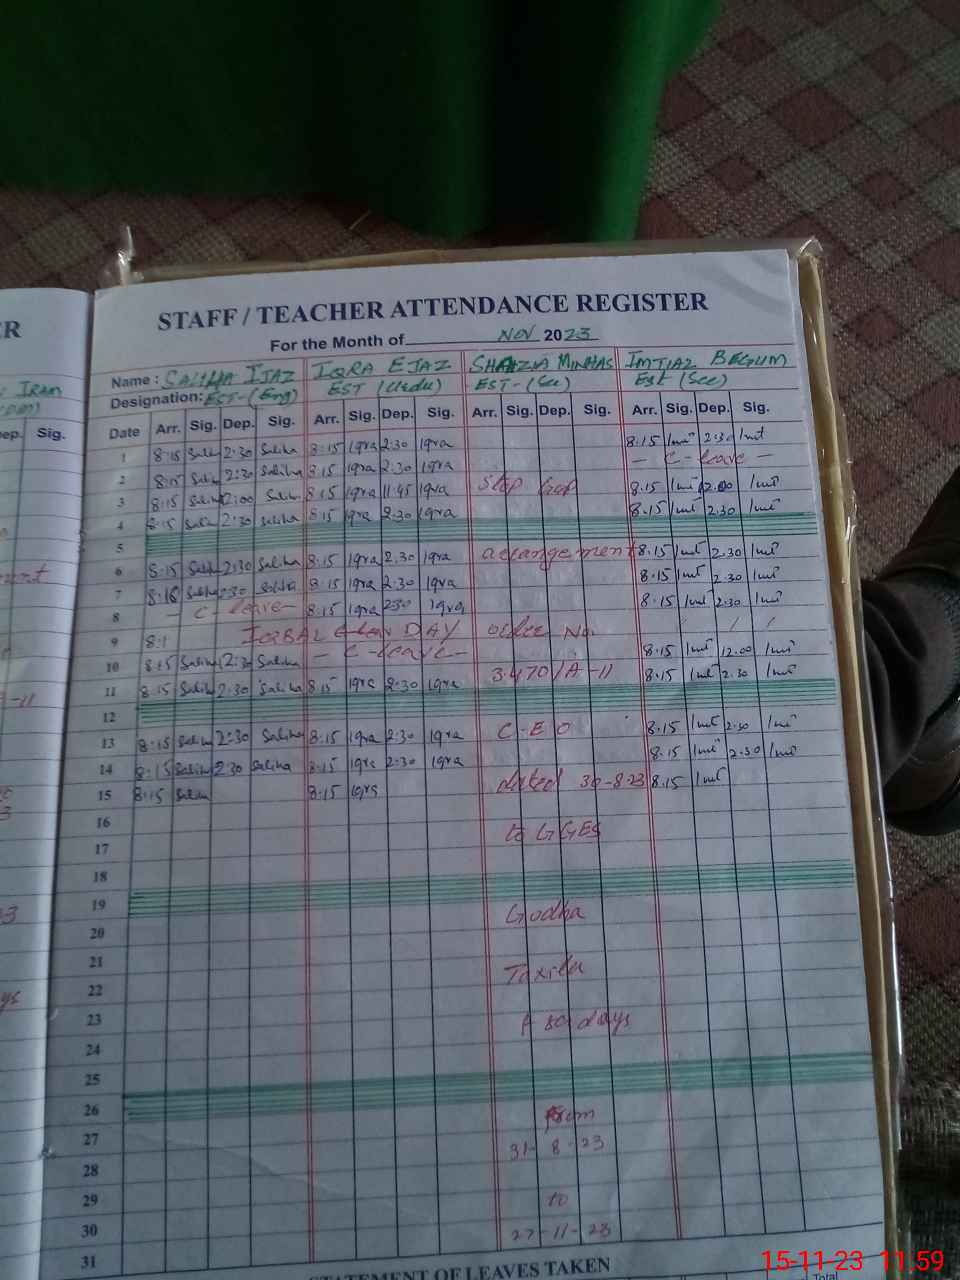 ER
IRAN
ep. Sig.
STAFF / TEACHER ATTENDANCE REGISTER
For the Month of NOV 2023
Name : SALIHA IJAZ IQRA EJAZ SHAZIA MINHAS IMTIAZ BEGUM
Designation: EST-(Eng) EST (Urdu) EST-(Sec) Est (Sec)
Date Arr. Sig. Dep. Sig. Arr. Sig. Dep. Sig. Arr. Sig. Dep. Sig. Arr. Sig. Dep. Sig.
1 8:15 Saliha 2:30 Saliha 8:15 Iqra 2:30 Iqra 8:15 Imt 2:30 Imt
2 8:15 Saliha 2:30 Saliha 8:15 Iqra 2:30 Iqra - C-leave -
3 8:15 Saliha 12:00 Saliha 8:15 Iqra 11:45 Iqra Stop Gap 8:15 Imt 12.00 Imt
4 8:15 Saliha 2:30 Saliha 8:15 Iqra 2:30 Iqra 8:15 Imt 2:30 Imt
5
6 8:15 Saliha 2:30 Saliha 8:15 Iqra 2:30 Iqra arrangement 8:15 Imt 2:30 Imt
7 8:15 Saliha 2:30 Saliha 8:15 Iqra 2:30 Iqra 8:15 Imt 2:30 Imt
8 - C-leave- 8:15 Iqra 2:30 Iqra 8:15 Imt 2:30 Imt
9 8:1 IQBAL DAY order No.
10 8:15 Saliha 12:30 Saliha - C-leave- 8:15 Imt 12.00 Imt
11 8:15 Saliha 2:30 Saliha 8:15 Iqra 2:30 Iqra 3470/A-11 8:15 Imt 2:30 Imt
12
13 8:15 Saliha 2:30 Saliha 8:15 Iqra 2:30 Iqra C-E O 8:15 Imt 2:30 Imt
14 8:15 Saliha 2:30 Saliha 8:15 Iqra 2:30 Iqra 8:15 Imt 2:30 Imt
15 8:15 Saliha 8:15 Iqra dated 30-8-23 8:15 Imt
16
17 to GGES
18
19
20 Godha
21
22 Taxila
23
24 days
25
26
27 From
28 31-8-23
29
30 to
31 27-11-23
STATEMENT OF LEAVES TAKEN
Total
15-11-23 11.59